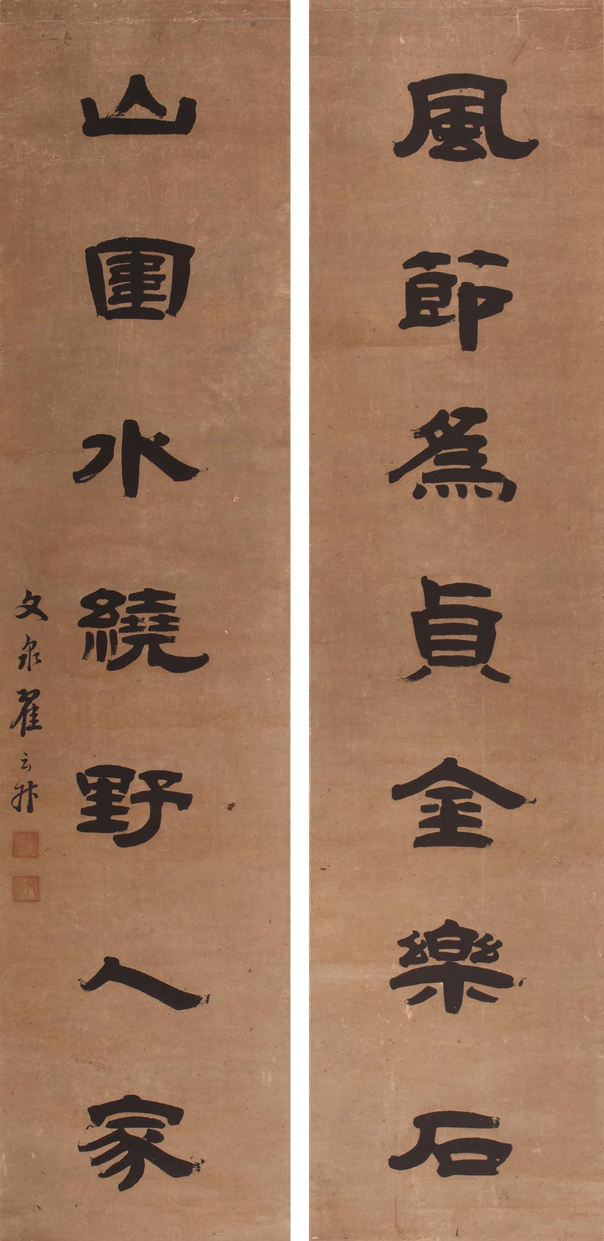 風節爲貞金樂石
山圍水繞野人家
文泉翟云升